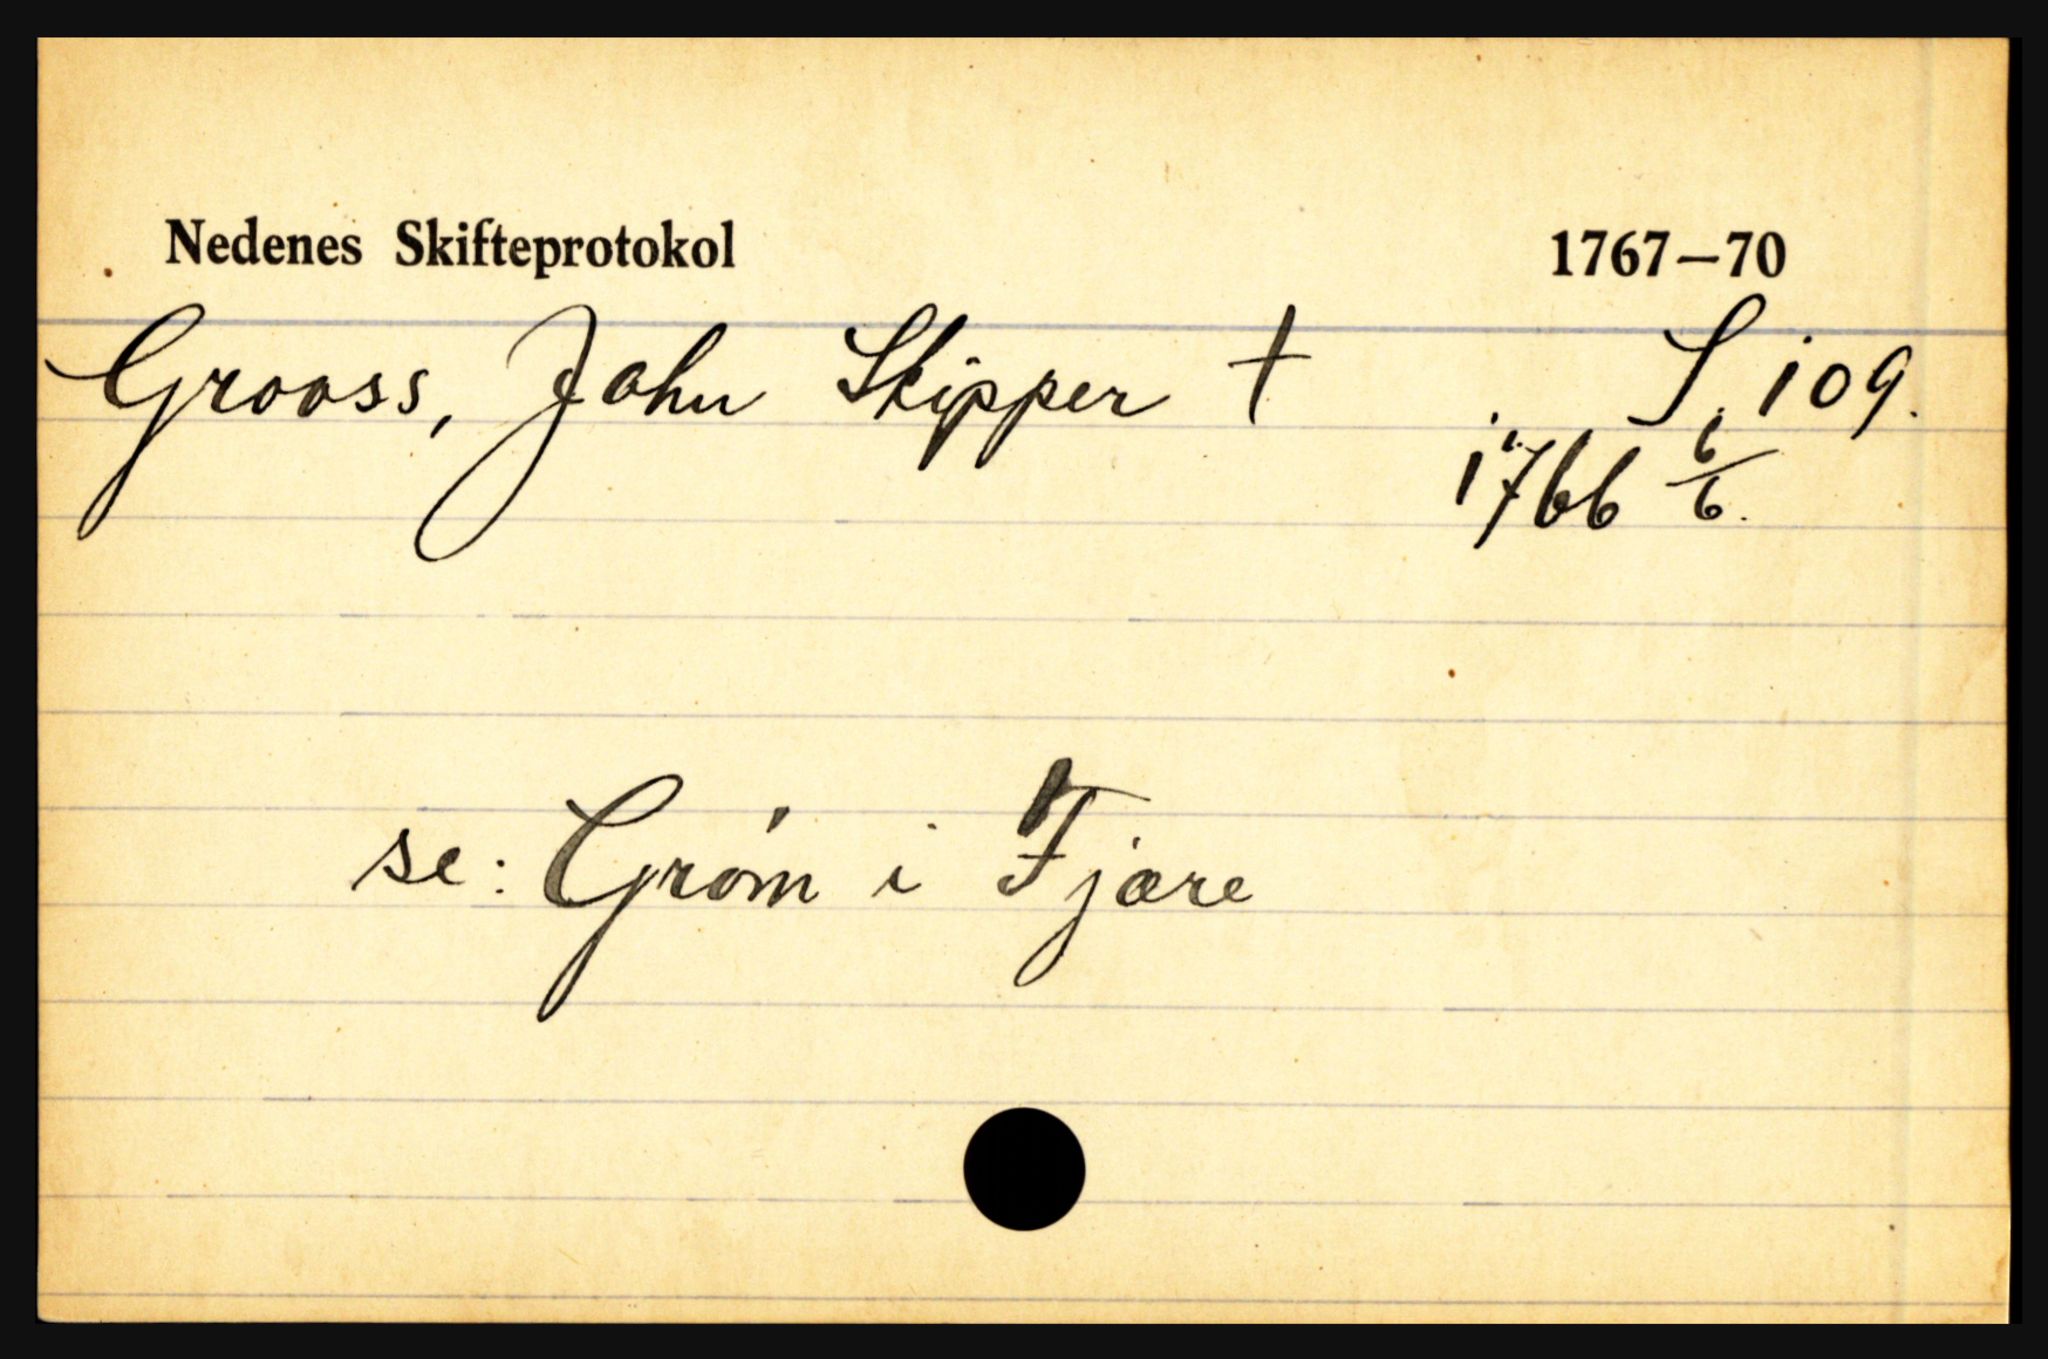 Nedenes Skifteprotokol 1767—70
Grooss, John Skipper † S. 109.
1766 6/6.
se: Grøm i Fjære